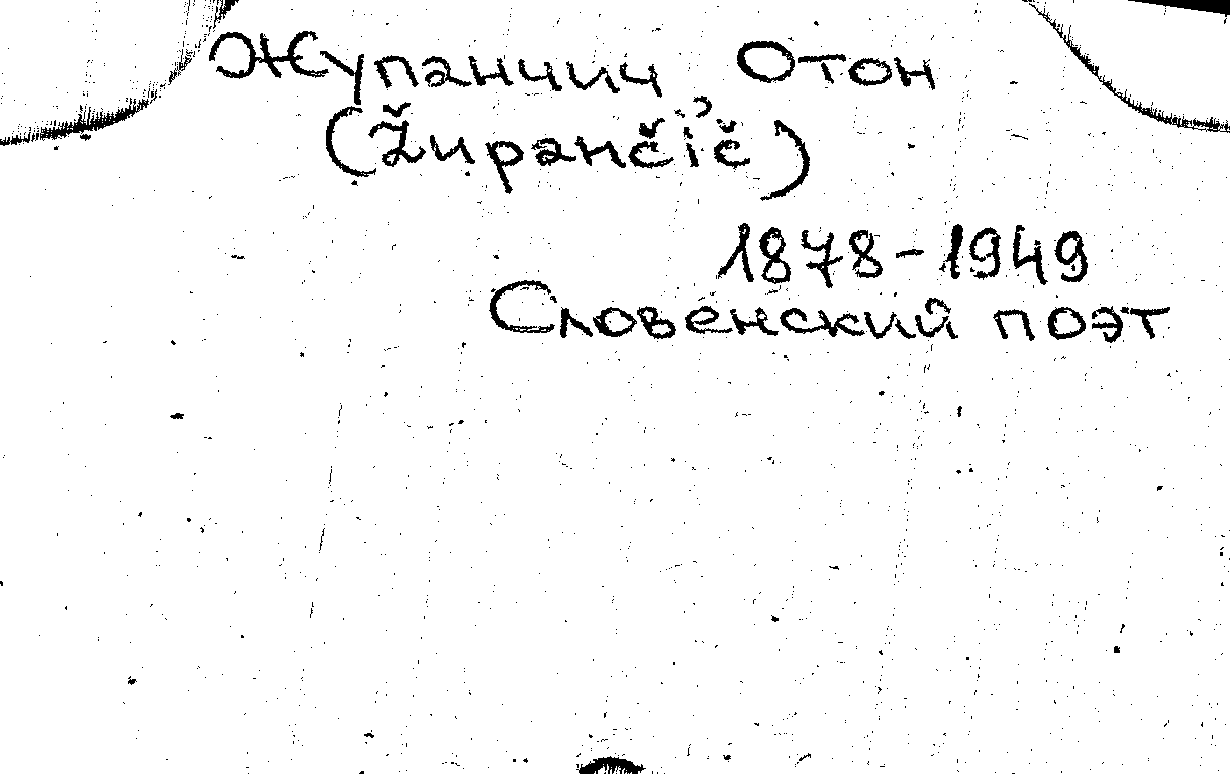 Жупанчич, Отон
(Župančič)
1878-1949
Словенский поэт